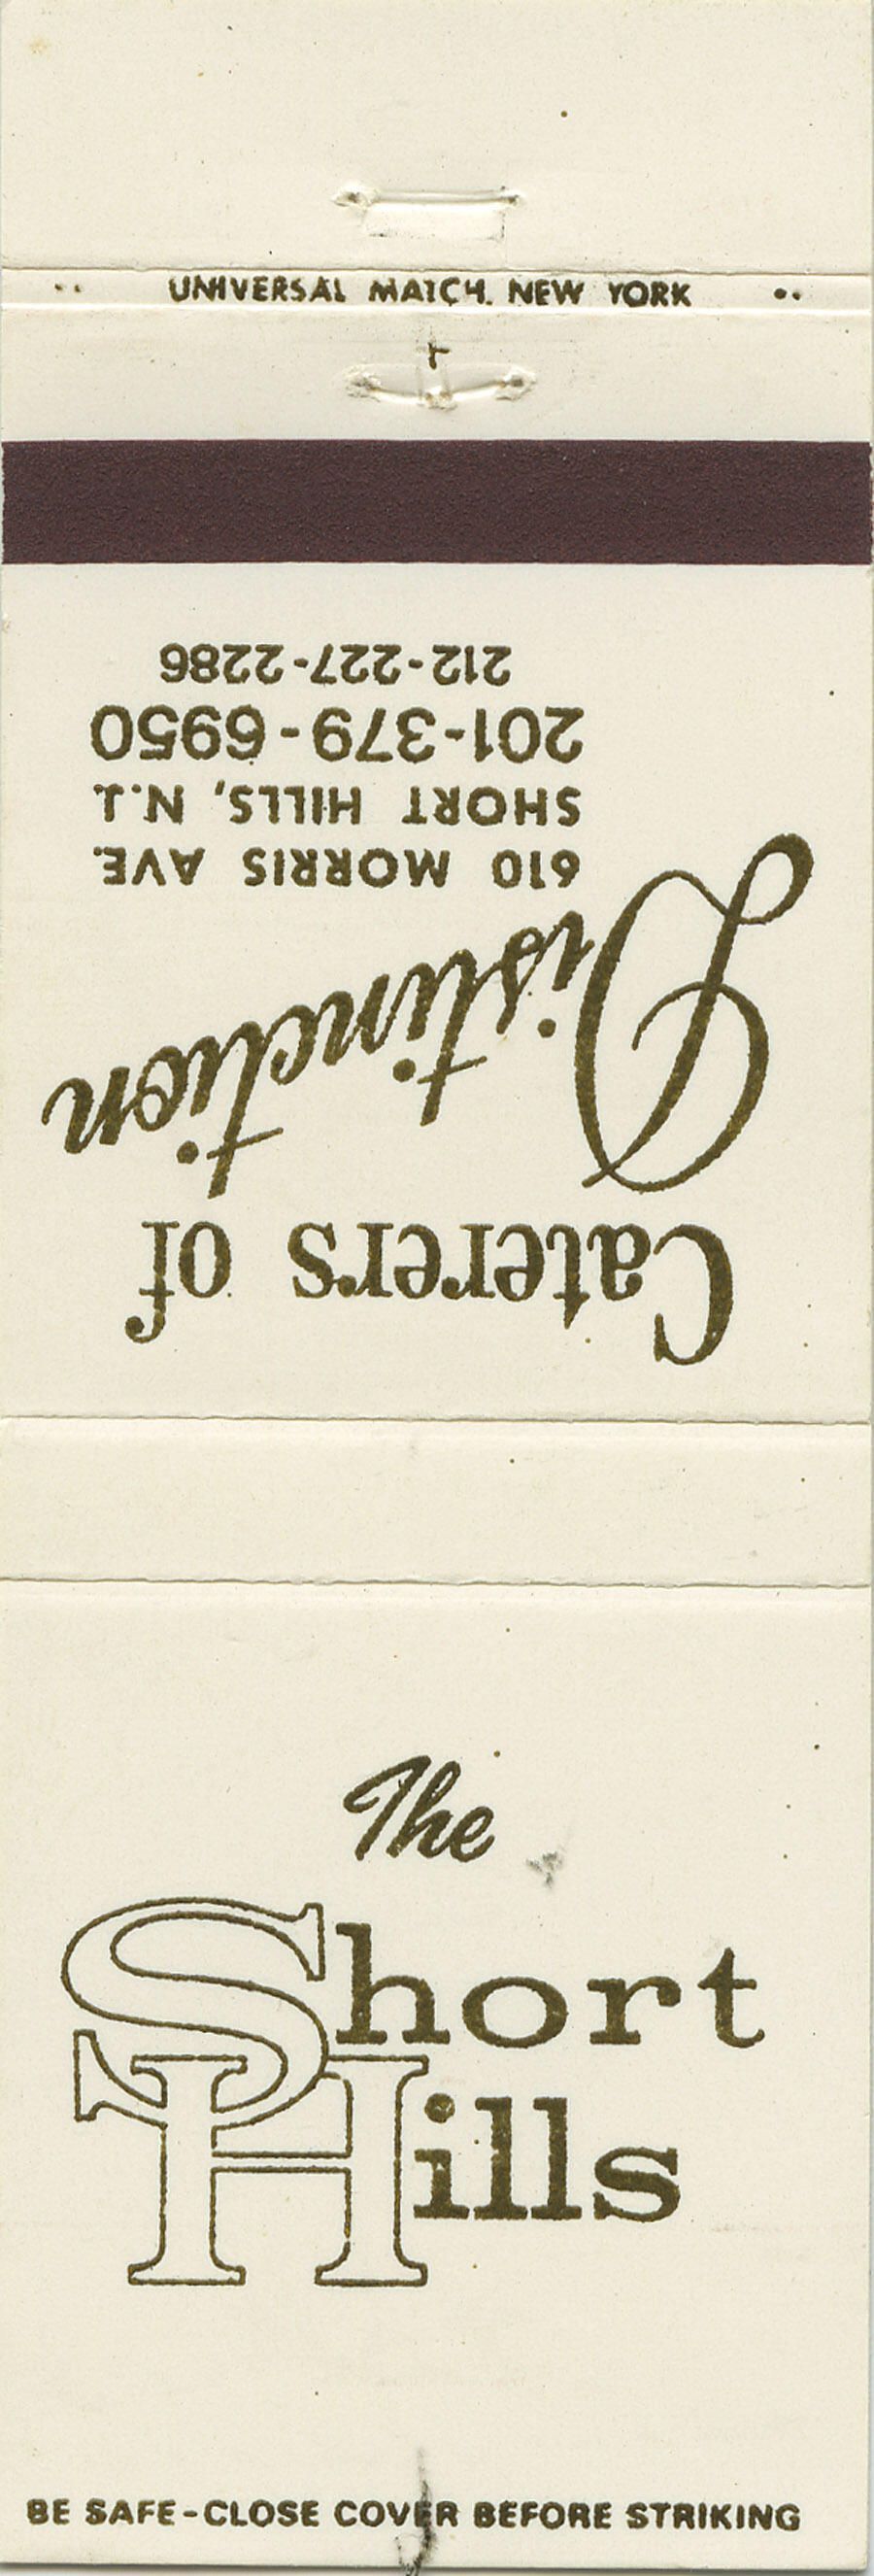 UNIVERSAL MATCH. NEW YORK
Caterers of
Distinction
610 MORRIS AVE.
SHORT HILLS, N.J.
201-379-6950
212-227-2286
The
Short
Hills
BE SAFE-CLOSE COVER BEFORE STRIKING